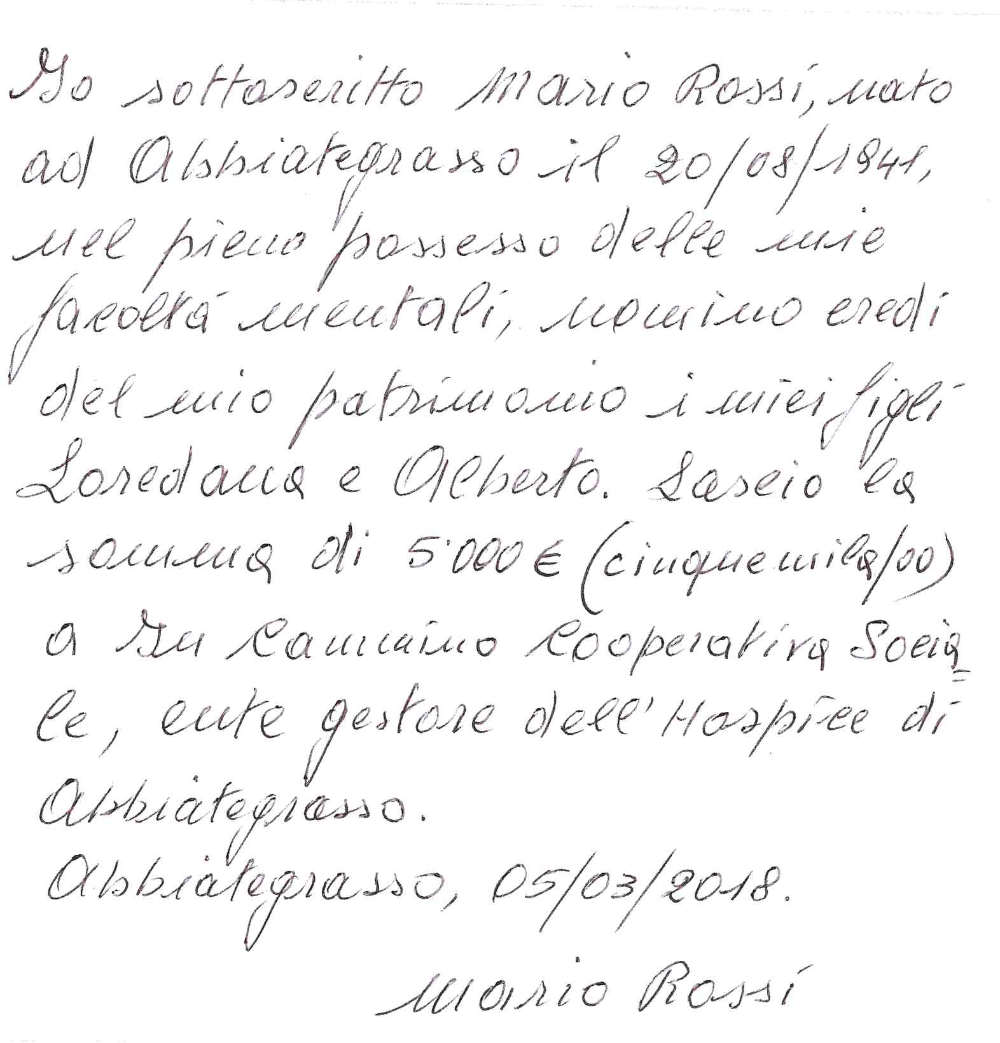 Io sottoscritto Mario Rossi, nato
ad Abbiategrasso il 20/08/1941,
nel pieno possesso delle mie
facoltá mentali, nomino eredi
del mio patrimonio i miei figli
Loredana e Alberto. Lascio la
somma di 5'000 € (cinquemila/00)
a In Cammino Cooperativa Socia=
le, ente gestore dell'Hospice di
Abbiategrasso.
Abbiategrasso, 05/03/2018.
Mario Rossi